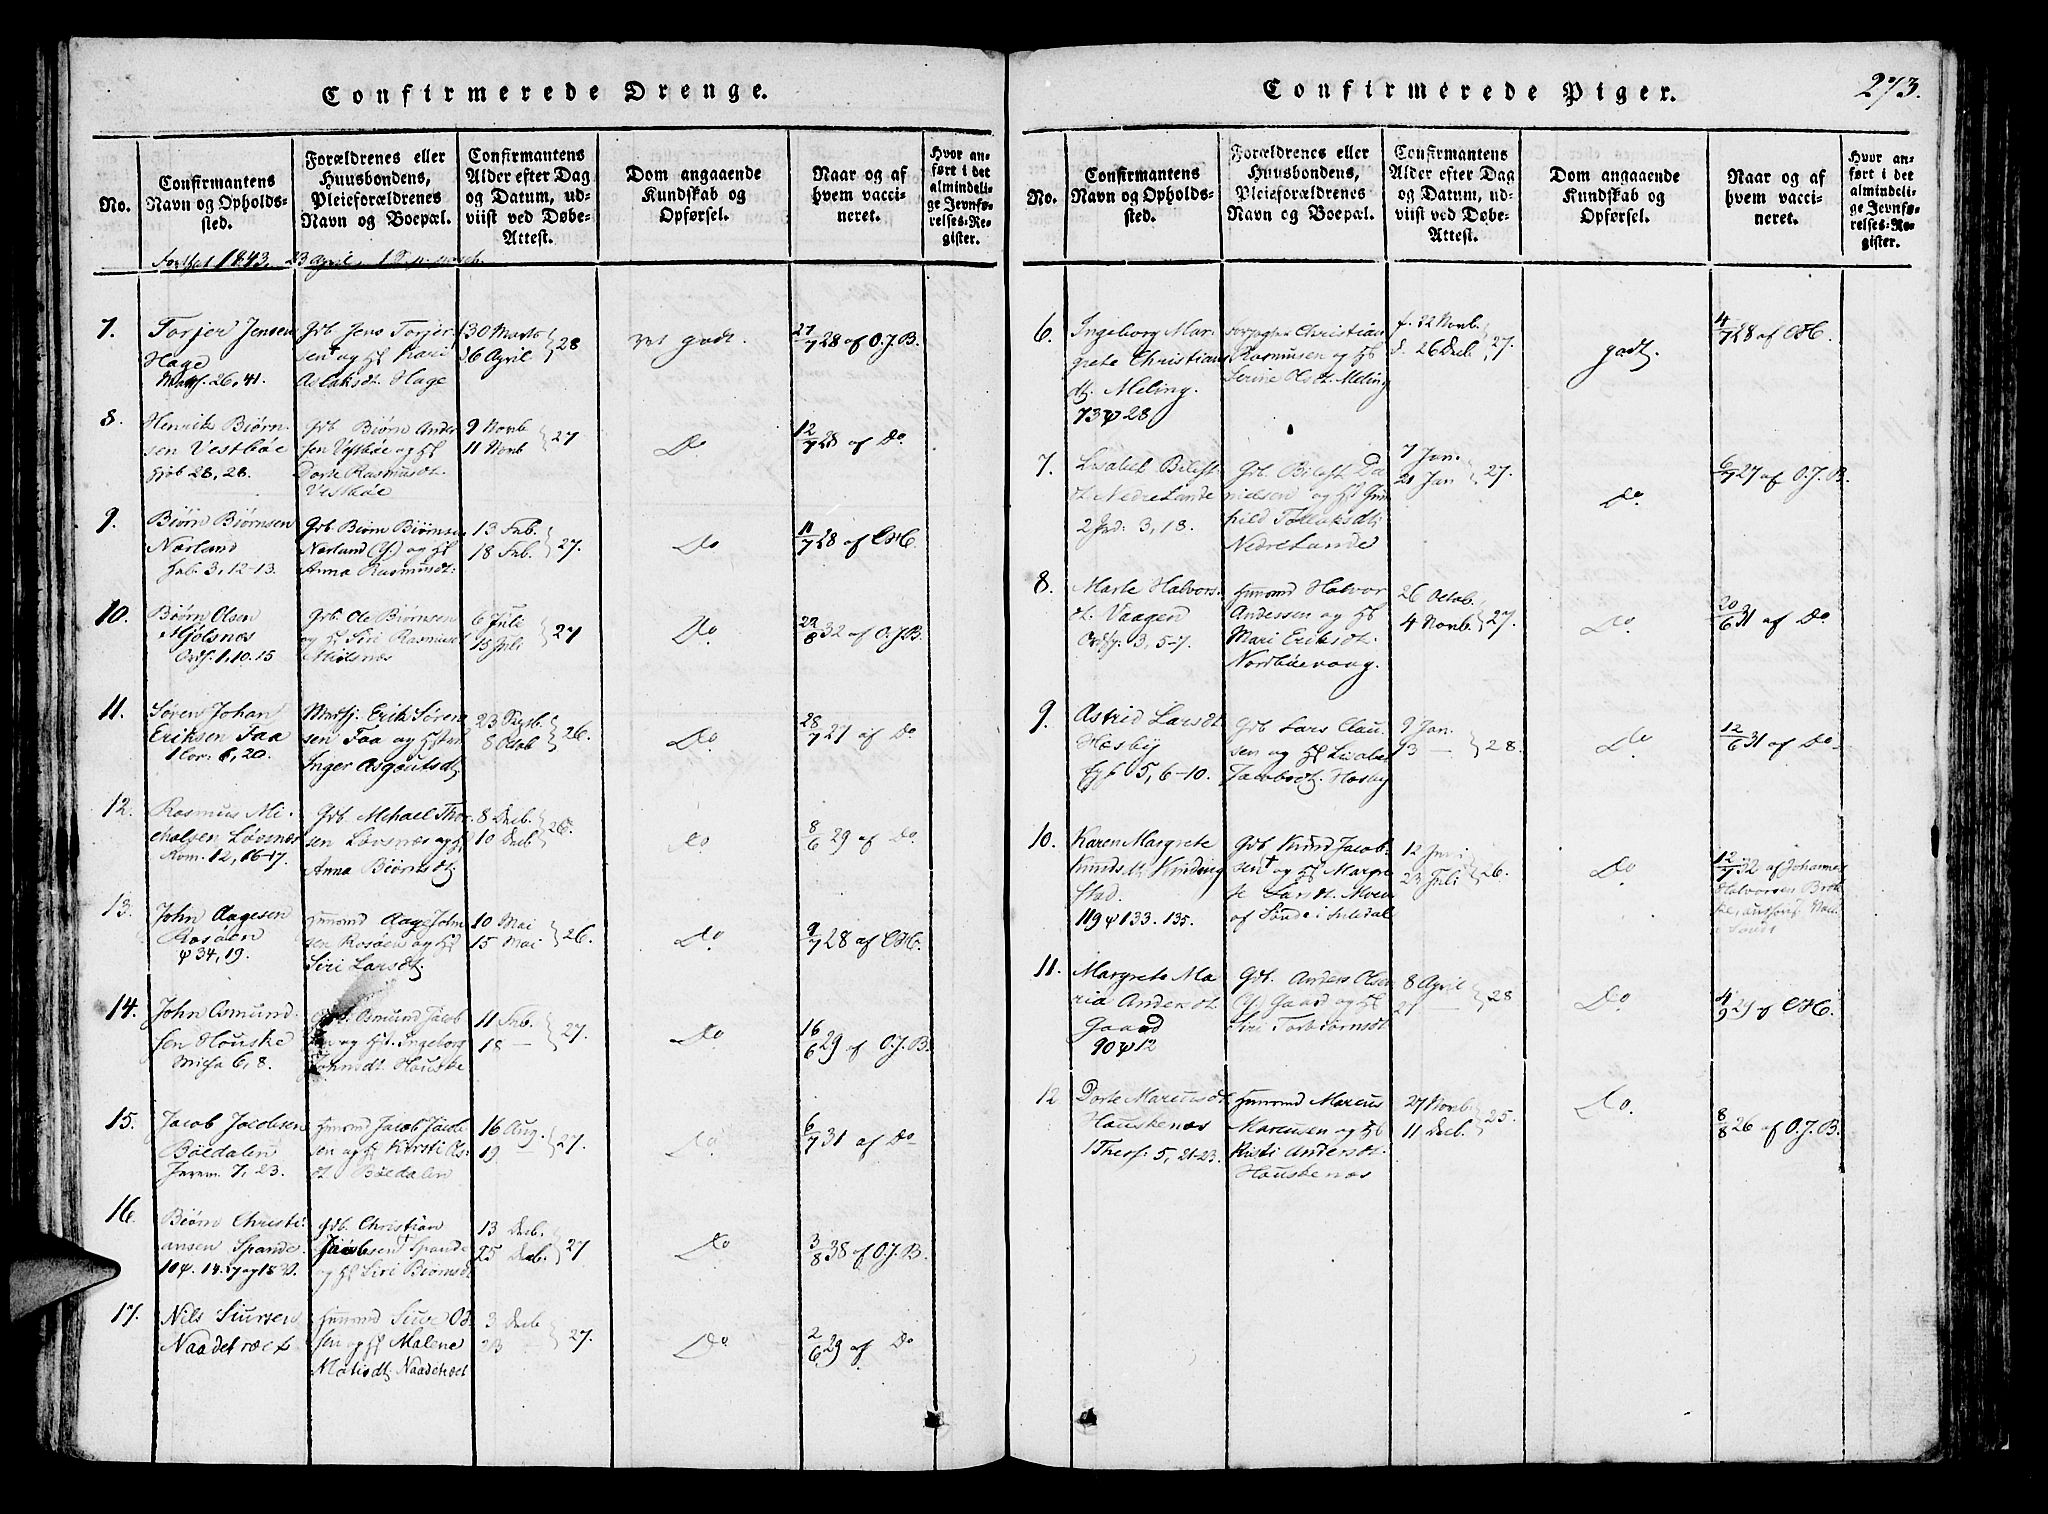 Confirmerede Drenge.
No.
Confirmantens Navn og Opholds-sted.
Forældrenes eller Huusbondens, Pleieforældrenes Navn og Boepæl.
Confirmantens Alder efter Dag og Datum, ud-viist ved Døbe-Attest.
Dom angaaende Kundskab og Opførsel.
Naar og af hvem vacci-neret.
Hvor an-ført i det almindeli-ge Jevnfø-relses-Re-gister.
1843. 23 April
7.
Torjer Jensen
Hage
26, 41.
Grb. Jens Torjer
sen † og Hst Kari
Aslaksdt. Hage
30 Marts
6 April
28
godt.
27/7 28 af O.J.B.
8.
Henrik Biørn
sen Vestbøe
28, 28.
Grb Biørn Ander
sen Vestbøe og Hst
Dorte Rasmusdt.
Vestbøe
9 Novb
11 Novb
27
Do
12/7 28 af Do.
9.
Biørn Biørnsen
Nærland
3, 12-13.
Grb. Biørn Biørnsen
Nærland (Y) og Hst
Anna Rasmusdt:
13 Feb.
18 Feb.
27.
Do
11/7 28 af CH.
10.
Biørn Olsen
Mjølsnæs
1, 10. 15
Grb. Ole Biørnsen
og Hst Siri Rasmusdt
Miølsnæs
6 Juli
15 Juli
27
Do.
22/8 32 af O.J.B.
11.
Søren Johan
Eriksen Faa
1 Cor. 6, 20.
Erik Søren
sen Faa og Hst
Inger Asgautsdt
23
8 Octob
26.
Do.
28/7 27 af Do.
12.
Rasmus Mi-
chalsen Løvsnæs
Rom. 12, 16-17.
Grb. Mikael Thor
sen Løvsnæs og Hst
Anna Biørnsdt.
8 Decb.
10 Decb
26.
Do
8/6 29 af Do.
13.
John Aagesen
Rosøen
ψ 34, 19.
Huusmd Aage John
sen Rosøen og Hst
Siri Larsdt.
10 Mai
15 Mai
26.
Do
9/7 28 af CH.
14.
John Asmund-
sen Houske
Micha 6, 8.
Asmund Jacob
sen og Hst. Ingeborg
Johnsdt Houske
11 Feb.
18 —
27.
Do
16/6 29 af O.J.B.
15.
Jacob Jacobsen
Bøedalen
Jerem. 7, 23.
Huusmd Jacob Jacob
sen og Hst Kirsti As
dt. Bøedalen
16 Aug.
19 —
27.
Do.
6/7 31 af Do
16.
Biørn Christi-
ansen Spande.
Grb. Christian
Jacobsen † Spande
og Hst Siri Biørnsdt
13 Decb.
25 Decb.
27
Do
3/8 38 af O.J.B.
17.
Nils Siursen
Naadetræet
Huusmd Siur
sen og Hst Malene
Matisdt Naadetræet
3 Decb
23 —
27.
Do
2/6 29 af Do
Confirmerede Piger.
273.
No.
Confirmantens Navn og Opholds-sted.
Forældrenes eller Huusbondens, Pleieforældrenes Navn og Boepæl.
Confirmantens Alder efter Dag og Datum, ud-viist ved Døbe-Attest.
Dom angaaende Kundskab og Opførsel.
Naar og af hvem vacci-neret.
Hvor an-ført i det almindeli-ge Jevnfø-relses-Re-gister.
6.
Ingeborg Mar-
grete Christians
dt. Meling.
73 ψ 28
Christian
Rasmusen og Hst
Serine Olsdt. Meling
f. 22 Novb.
d. 26 Decb
27.
godt.
4/7 28 af CH.
7.
Lisabet
dt. Nedre Lande
3, 18.
Grb. Da
nielsen og Hst Gun
hild Tollaksdt.
Nedre Lande
7 Jan.
21 Jan
27.
Do.
6/7 27 af O.J.B.
8.
Marte Halvors
dt. Vaagen
3, 5-7.
Huusmd Halvor
Andersen og Hst
Mari Eriksdt.
Nordbøevaag.
26 Octob.
4 Novb.
27.
Do.
20/6 31 af Do
9.
Astrid Larsdt.
Hæsby
5, 6-10.
Grb Lars Clau
sen og Hst Lisabet
Jacobsdt. Hæsby
9 Jan.
13 —
28.
Do
12/6 31 af Do
10.
Karen Margrete
Knudsdt.
stad.
119 ψ 133. 135.
Grb Knud Jacob-
sen † og Hst Margre
te Larsdt.
af Sønde i Suledal
12
23 Juli
26.
Do
12/7 32 af Johannes
Halvorsen
11.
Margrete Ma
ria Andersdt.
Gaard
90 ψ 12
Grb. Anders Olsen
(Y.) Gaard og Hst
Siri Torbiørnsdt
8 April
27 —
28
Do
4/9 29 af CH.
12
Dorte Marcusdt.
Houskenæs
1 Thess: 5, 21-23.
Huusmd Marcus
Marcusen og Hst
Kristi Andersdt.
Houskenæs
27 Novb
11 Decb.
25.
Do.
8/8 26 af O.J.B.